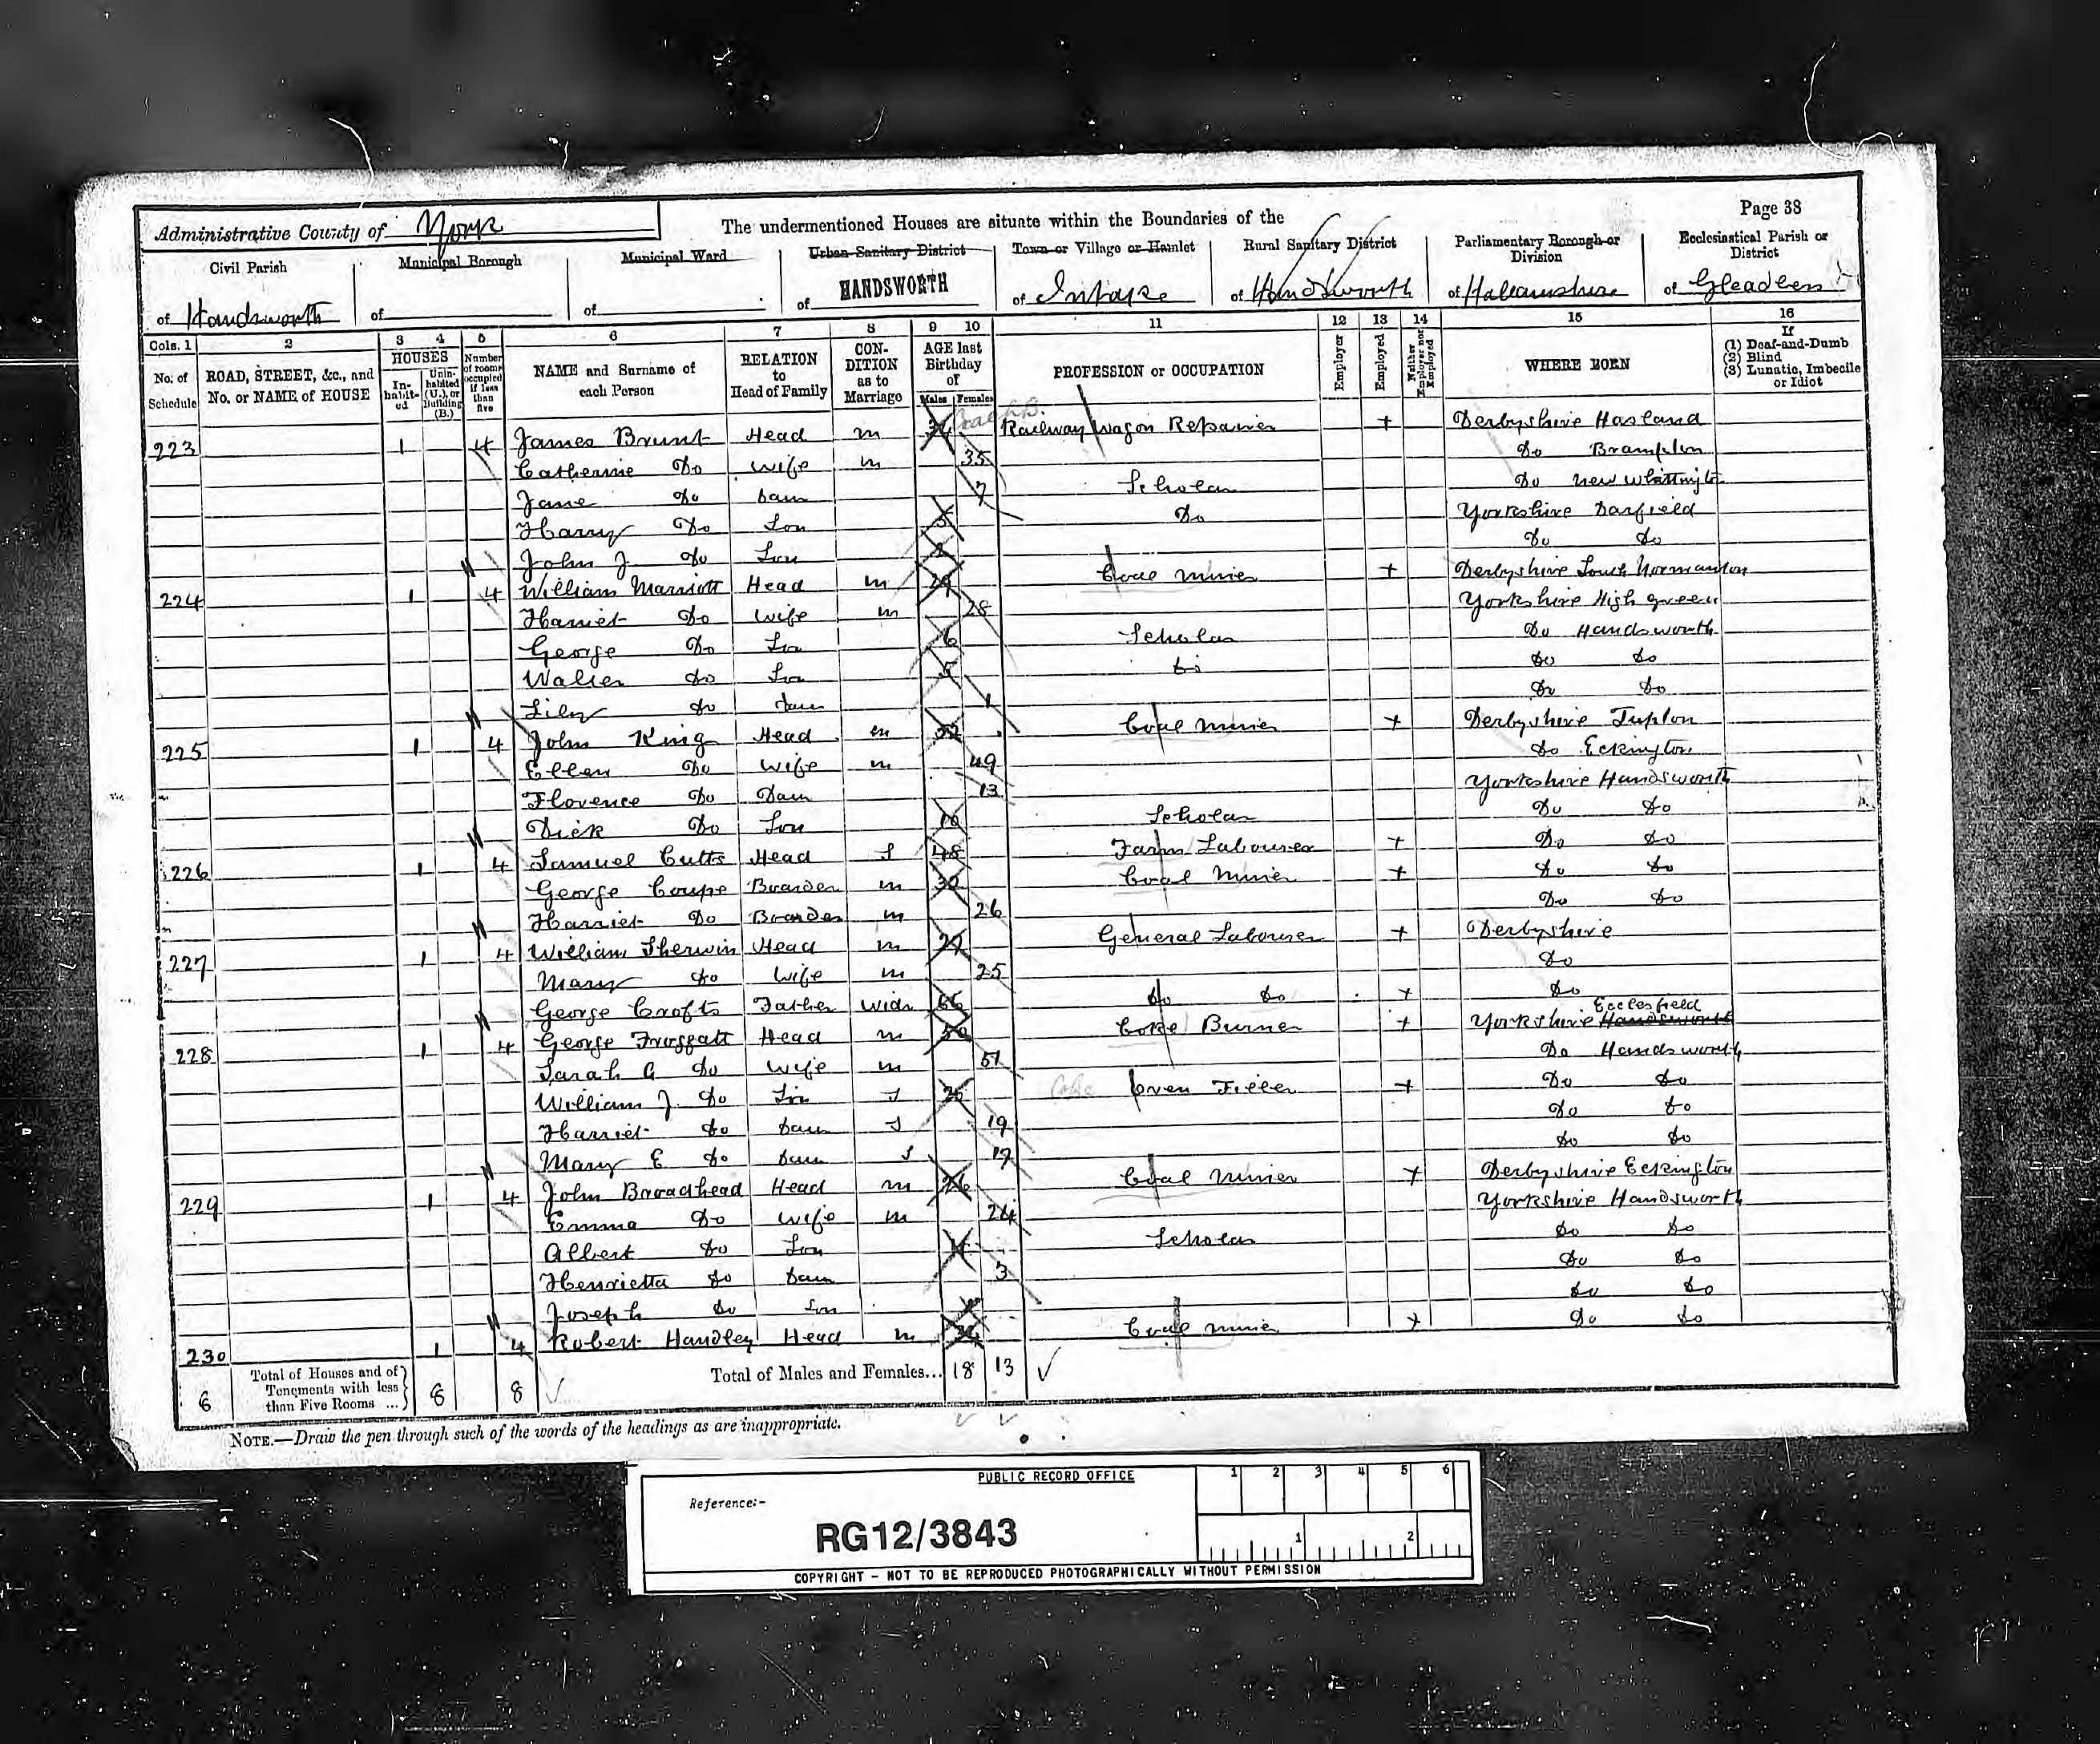 Page 38
Administrative County of York
The undermentioned Houses are situate within the Boundaries of the
Civil Parish
of Handsworth
Municipal Borough
of
Municipal Ward
of
Urban Sanitary District
of HANDSWORTH
Town or Village or Hamlet
of Intake
Rural Sanitary District
of Handsworth
Parliamentary Borough or Division
of Hallamshire
Ecclesiastical Parish or District
of Gleadless
Cols. 1 2 3 4 5 6 7 8 9 10 11 12 13 14 15 16
No. of Schedule
ROAD, STREET, &c., and No. or NAME of HOUSE
HOUSES
In-habit-ed
Unin-habited (U.), or Building (B.)
Number of rooms occupied if less than five
NAME and Surname of each Person
RELATION to Head of Family
CON-DITION as to Marriage
AGE last Birthday of
Males Females
PROFESSION or OCCUPATION
Employer
Employed
Neither Employer nor Employed
WHERE BORN
If
(1) Deaf-and-Dumb
(2) Blind
(3) Lunatic, Imbecile or Idiot
223 1 4 James Brunt Head m Railway Wagon Repairer + Derbyshire Hasland
Catherine Do Wife m 35 Do Brampton
Jane Do Daur 7 Scholar Do New Whittington
Harry Do Son Do Yorkshire Darfield
John J. Do Son Do Do
224 1 4 William Marriott Head m 29 Coal Miner + Derbyshire South Normanton
Harriet Do Wife m 28 Yorkshire High green
George Do Son 6 Scholar Do Handsworth
Walter Do Son 5 Do Do Do
Lily Do Daur 1 Do Do
225 1 4 John King Head m Coal Miner + Derbyshire Tupton
Ellen Do Wife m 49 Do Eckington
Florence Do Daur 13 Yorkshire Handsworth
Dick Do Son 10 Scholar Do Do
226 1 4 Samuel Cutts Head S 48 Farm Labourer + Do Do
George Coupe Boarder m 30 Coal Miner + Do Do
Harriet Do Boarder m 26 Do Do
227 1 4 William Sherwin Head m General Labourer + Derbyshire
Mary Do Wife m 25 Do
George Crofts Father Widr 66 Do Do + Do
228 1 4 George Froggatt Head m 50 Coke Burner + Yorkshire Handsworth Ecclesfield
Sarah A Do Wife m 51 Do Handsworth
William J. Do Son S Coke Oven Filler + Do Do
Harriet Do Daur S 19 Do Do
Mary E Do Daur S 17 Do Do
229 1 4 John Broadhead Head m 26 Coal Miner + Derbyshire Eckington
Emma Do Wife m 24 Yorkshire Handsworth
Albert Do Son Scholar Do Do
Henrietta Do Daur 3 Do Do
Joseph Do Son Do Do
230 1 4 Robert Handley Head m Coal Miner + Do Do
Total of Houses and of Tenements with less than Five Rooms ...
8 8
Total of Males and Females... 18 13
NOTE.—Draw the pen through such of the words of the headings as are inappropriate.
PUBLIC RECORD OFFICE
1 2 3 4 5 6
Reference:-
RG12/3843
1 2
COPYRIGHT - NOT TO BE REPRODUCED PHOTOGRAPHICALLY WITHOUT PERMISSION